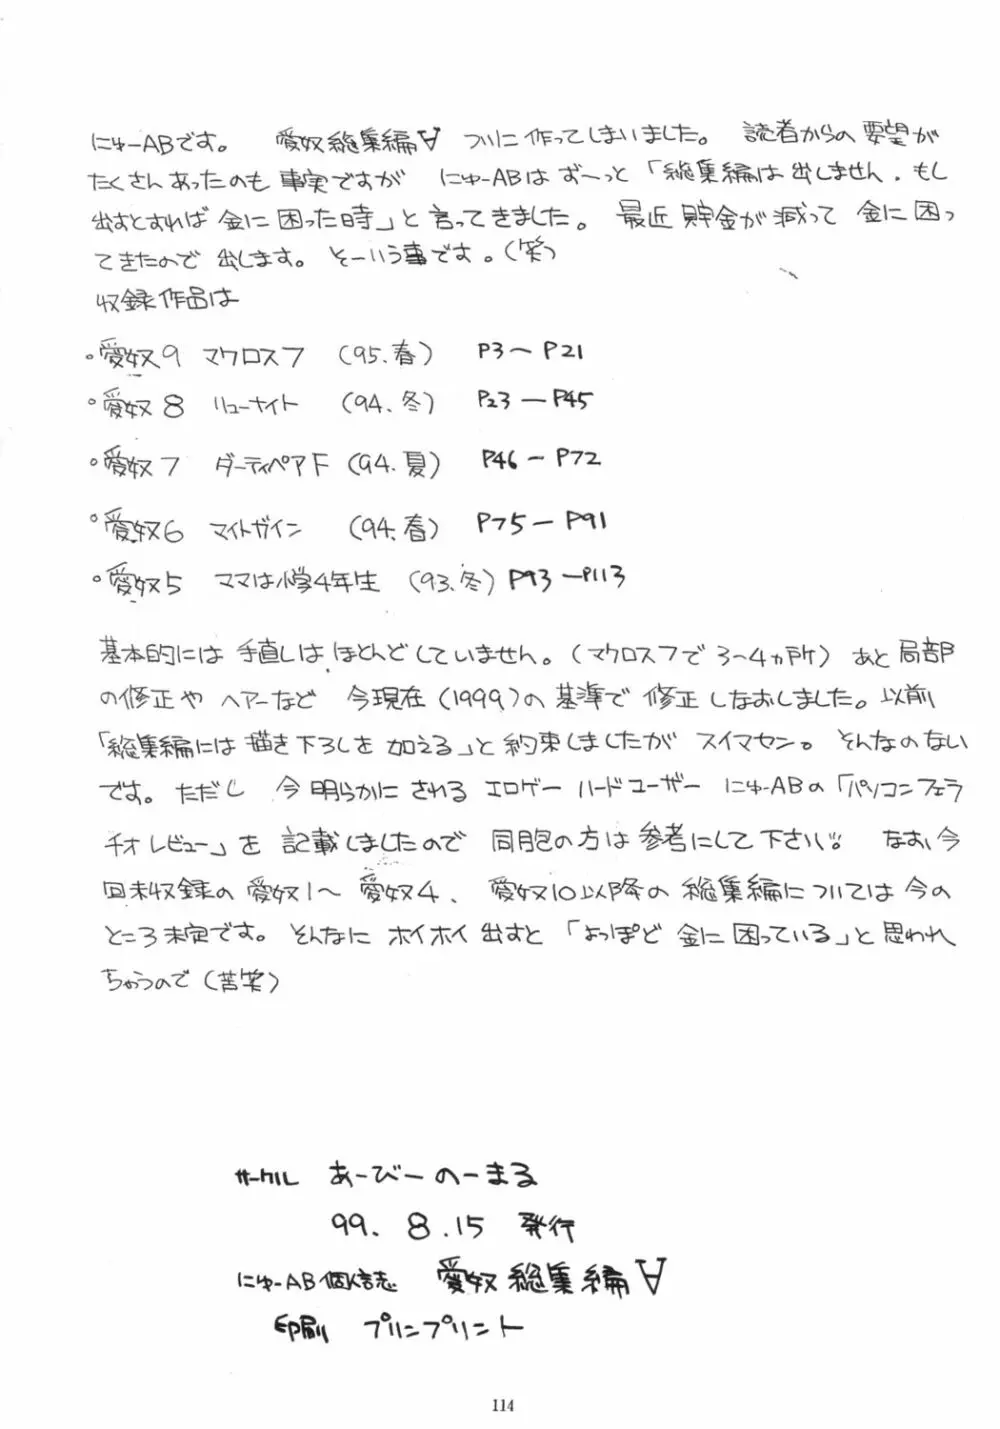 にゅーABです。 愛奴総集編∀ ついに作ってしまいました。 読者からの要望が
たくさんあったのも事実ですが にゅーABはずーっと「総集編は出しません。もし
出すとすれば金に困った時」と言ってきました。 最近貯金が減って 金に困っ
てきたので 出します。そーいう事です。(笑)
収録作品は
。愛奴9 マクロス7 (95.春) P3〜P21
。愛奴8 リューナイト (94.冬) P23―P45
。愛奴7 ダーティペアF (94.夏) P46―P72
。愛奴6 マイトガイン (94.春) P75―P91
。愛奴5 ママは小学4年生 (93.冬) P93―P113
基本的には 手直しは ほとんどしていません。(マクロス7で3〜4ヵ所) あと局部
の修正や ヘアーなど 今現在(1999)の基準で 修正しなおしました。以前
「総集編には描き下ろしを加える」と約束しましたが スイマセン。そんなのない
です。ただし 今明らかにされる エロゲー ハードユーザー にゅーABの「パソコンフェラ
チオレビュー」を 記載しましたので 同胞の方は参考にして下さい。 なお、今
回未収録の 愛奴1〜愛奴4、 愛奴10以降の 総集編については今の
ところ未定です。そんなに ホイホイ出すと「よっぽど 金に困っている」と思われ
ちゃうので(苦笑)
サークル あーびーのーまる
99. 8 .15 発行
にゅーAB個人誌 愛奴総集編∀
印刷 プリンプリント
114